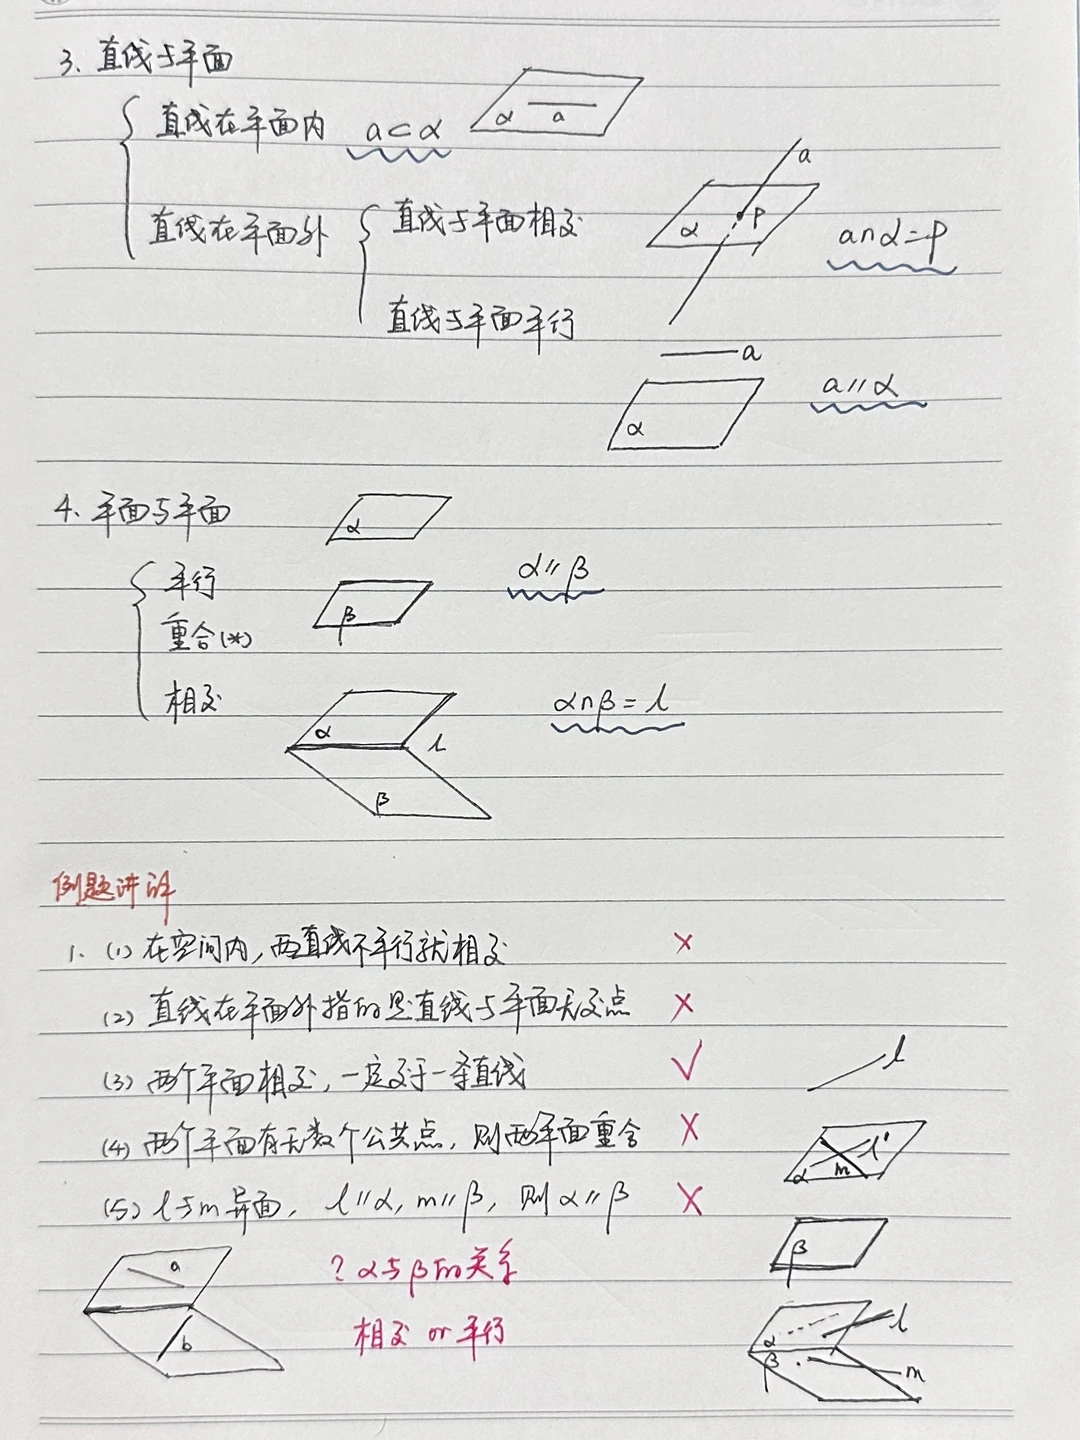 3、直线与平面
直线在平面内 a⊂α
α a
直线在平面外
直线与平面相交
a
α P
a∩α=P
直线与平面平行
a
α
a//α
4、平面与平面
α
平行
β
α//β
重合(*)
相交
α l
β
α∩β=l
例题讲解
1、(1)在空间内,两直线不平行就相交 ×
(2)直线在平面外指的是直线与平面无交点 ×
(3)两个平面相交,一定交于一条直线 √
l
(4)两个平面有无数个公共点,则两平面重合 ×
α m l'
(5)l与m异面,l//α,m//β,则α//β ×
β
a
b
?α与β的关系
相交 or 平行
α l
β m